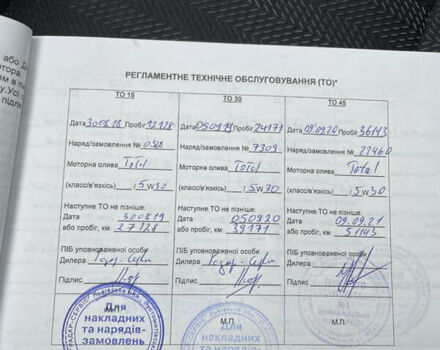 або д
тора.
ем в п
у.Усі -
підля
РЕГЛАМЕНТНЕ ТЕХНІЧНЕ ОБСЛУГОВУВАННЯ (ТО)*
ТО 15 ТО 30 ТО 45
Дата 300818 Пробіг 12128 Дата 050919 Пробіг 24171 Дата 09.09.20 Пробіг 36143
Наряд/замовлення № 058 Наряд/замовлення № 7309 Наряд/замовлення № 22460
Моторна олива Total Моторна олива Total Моторна олива Total
(клас/в'язкість) , 5w30 (клас/в'язкість) , 5w30 (клас/в'язкість) , 5w30
Наступне ТО не пізніше: Наступне ТО не пізніше: Наступне ТО не пізніше:
Дата 300819 Дата 050920 Дата 09.09.21
або пробіг, км 27128 або пробіг, км 39171 або пробіг, км 51143
ПІБ уповноваженої особи ПІБ уповноваженої особи ПІБ уповноваженої особи
Дилера Дилера Дилера
Підпис Підпис Підпис
М.П. М.П.
Для
накладних
та нарядів-
замовлень
Для
накладних
та нарядів-